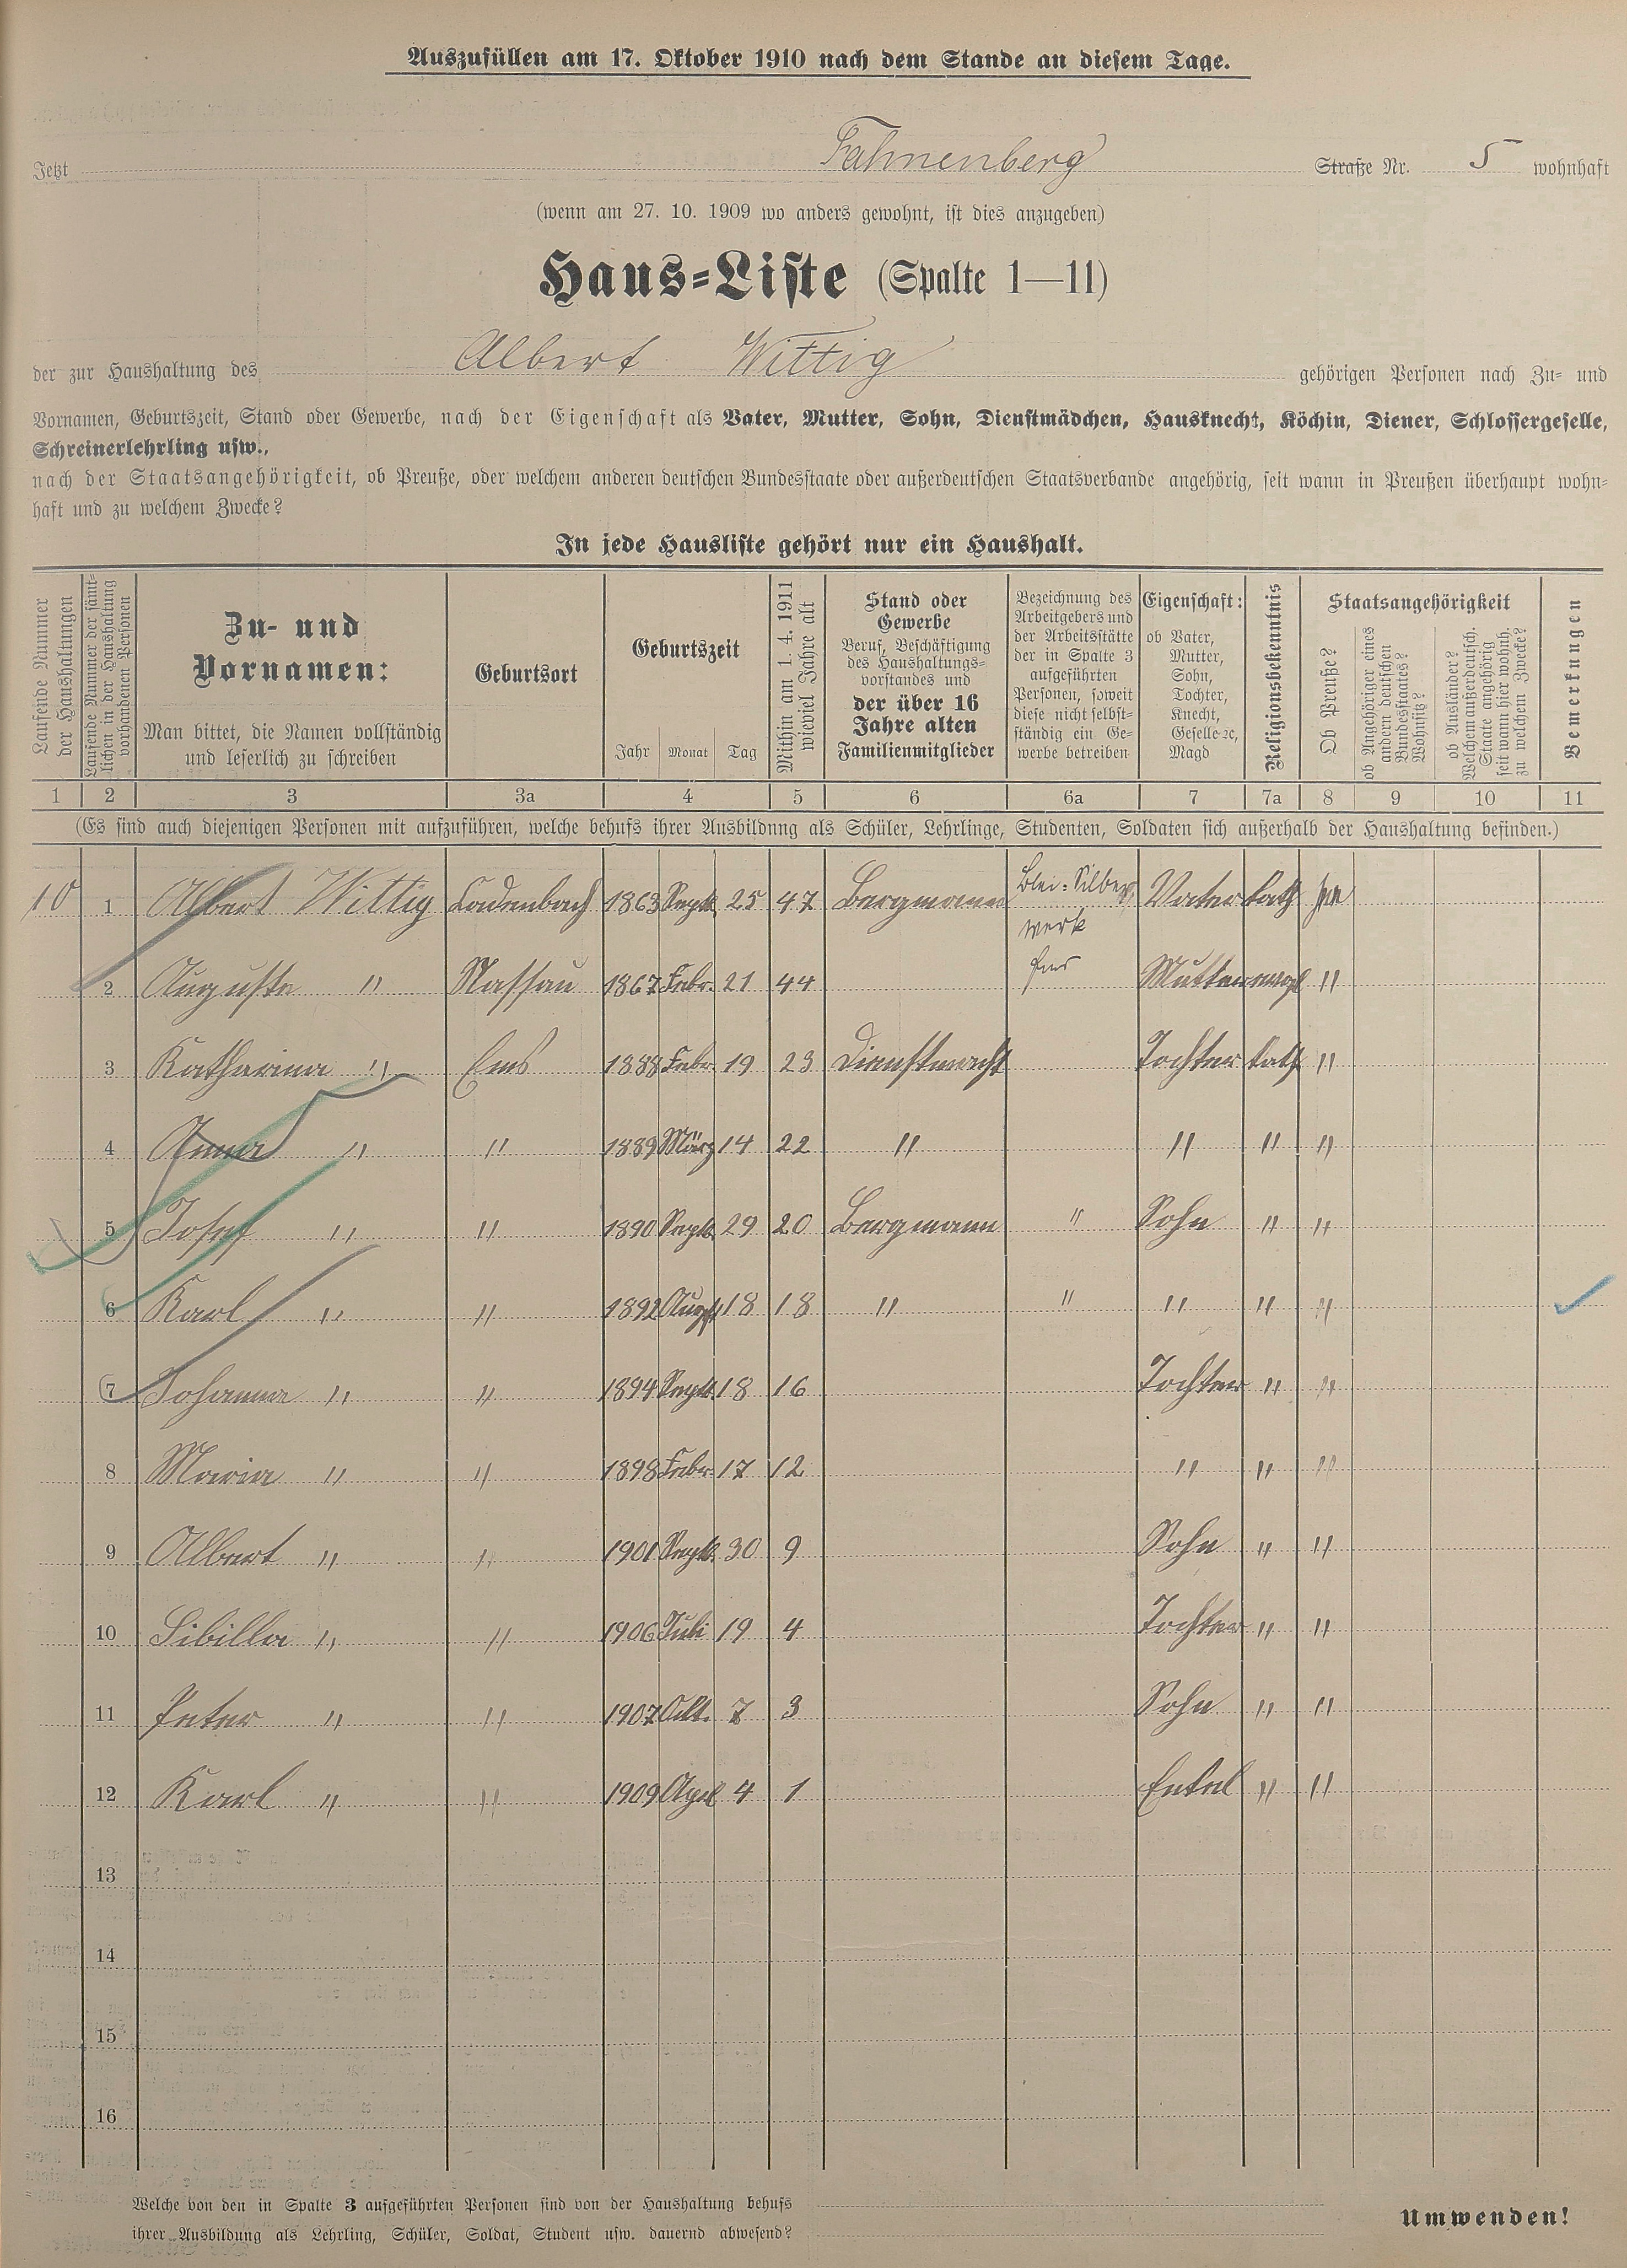 Auszufüllen am 17. Oktober 1910 nach dem Stande an diesem Tage.
Jetzt Fahnenberg Straße Nr. 5 wohnhaft
(wenn am 27. 10. 1909 wo anders gewohnt, ist dies anzugeben)
Haus-Liste (Spalte 1—11)
der zur Haushaltung des Albert Wittig gehörigen Personen nach Zu- und
Vornamen, Geburtszeit, Stand oder Gewerbe, nach der Eigenschaft als Vater, Mutter, Sohn, Dienstmädchen, Hausknecht, Köchin, Diener, Schlossergeselle,
Schreinerlehrling usw.,
nach der Staatsangehörigkeit, ob Preuße, oder welchem anderen deutschen Bundesstaate oder außerdeutschen Staatsverbande angehörig, seit wann in Preußen überhaupt wohn-
haft und zu welchem Zwecke?
In jede Hausliste gehört nur ein Haushalt.
Laufende Nummer
der Haushaltungen
Laufende Nummer der sämt-
lichen in der Haushaltung
vorhandenen Personen
Zu- und
Vornamen:
Man bittet, die Namen vollständig
und leserlich zu schreiben
Geburtsort
Geburtszeit
Jahr Monat Tag
Mithin am 1. 4. 1911
wieviel Jahre alt
Stand oder
Gewerbe
Beruf, Beschäftigung
des Haushaltungs-
vorstandes und
der über 16
Jahre alten
Familienmitglieder
Bezeichnung des
Arbeitgebers und
der Arbeitsstätte
der in Spalte 3
aufgeführten
Personen, soweit
diese nicht selbst-
ständig ein Ge-
werbe betreiben
Eigenschaft:
ob Vater,
Mutter,
Sohn,
Tochter,
Knecht,
Geselle ꝛc,
Magd
Religionsbekenntnis
Staatsangehörigkeit
Ob Preuße?
ob Angehöriger eines
andern deutschen
Bundesstaates?
Wohnsitz?
ob Ausländer?
Welchem außerdeutsch.
Staate angehörig
seit wann hier wohnh.
zu welchem Zwecke?
Bemerkungen
1 2 3 3a 4 5 6 6a 7 7a 8 9 10 11
(Es sind auch diejenigen Personen mit aufzuführen, welche behufs ihrer Ausbildnng als Schüler, Lehrlinge, Studenten, Soldaten sich außerhalb der Haushaltung befinden.)
10 1 Albert Wittig Cadenbach 1863 Septb. 25 47 Bergmann Blei- Silber Vater kath
werk
2 Auguste " Nassau 1867 Febr. 21 44 Ems Mutter evagl "
3 Katharina " Ems 1888 Febr. 19 23 Dienstmacht Tochter kath "
4 Anna " " 1889 März 14 22 " " " "
5 Josef " " 1890 Septb. 29 20 Bergmann " Sohn " "
6 Karl " " 1892 Augst 18 18 " " " " "
7 Johanna " " 1894 Septb. 18 16 Tochter " "
8 Maria " " 1898 Febr. 17 12 " " "
9 Albert " " 1901 Septb. 30 9 Sohn " "
10 Sibilla " " 1906 Juli 19 4 Tochter " "
11 Peter " " 1907 Okt. 7 3 Sohn " "
12 Karl " " 1909 Aprl 4 1 Enkel " "
13
14
15
16
Welche von den in Spalte 3 aufgeführten Personen sind von der Haushaltung behufs
ihrer Ausbildung als Lehrling, Schüler, Soldat, Student usw. dauernd abwesend?
Umwenden!